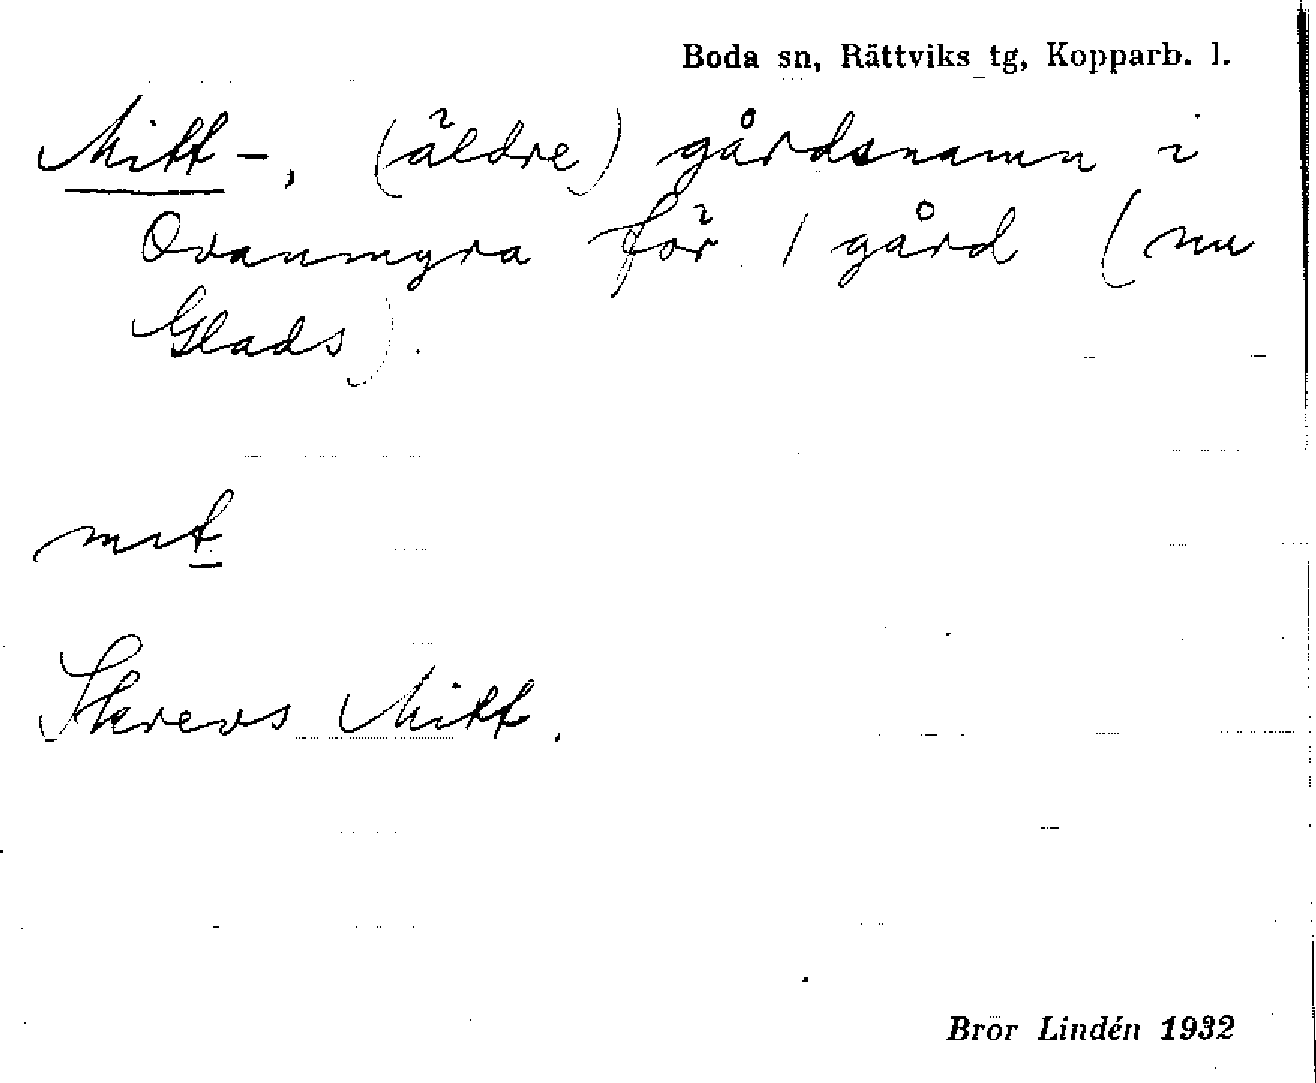 Boda sn, Rättviks tg, Kopparb. l.
Mitt-, (äldre) gårdsnamn i
Ovanmyra för 1 gård (nu
Glads).
mit
Skrevs Mitt.
Bror Lindén 1932